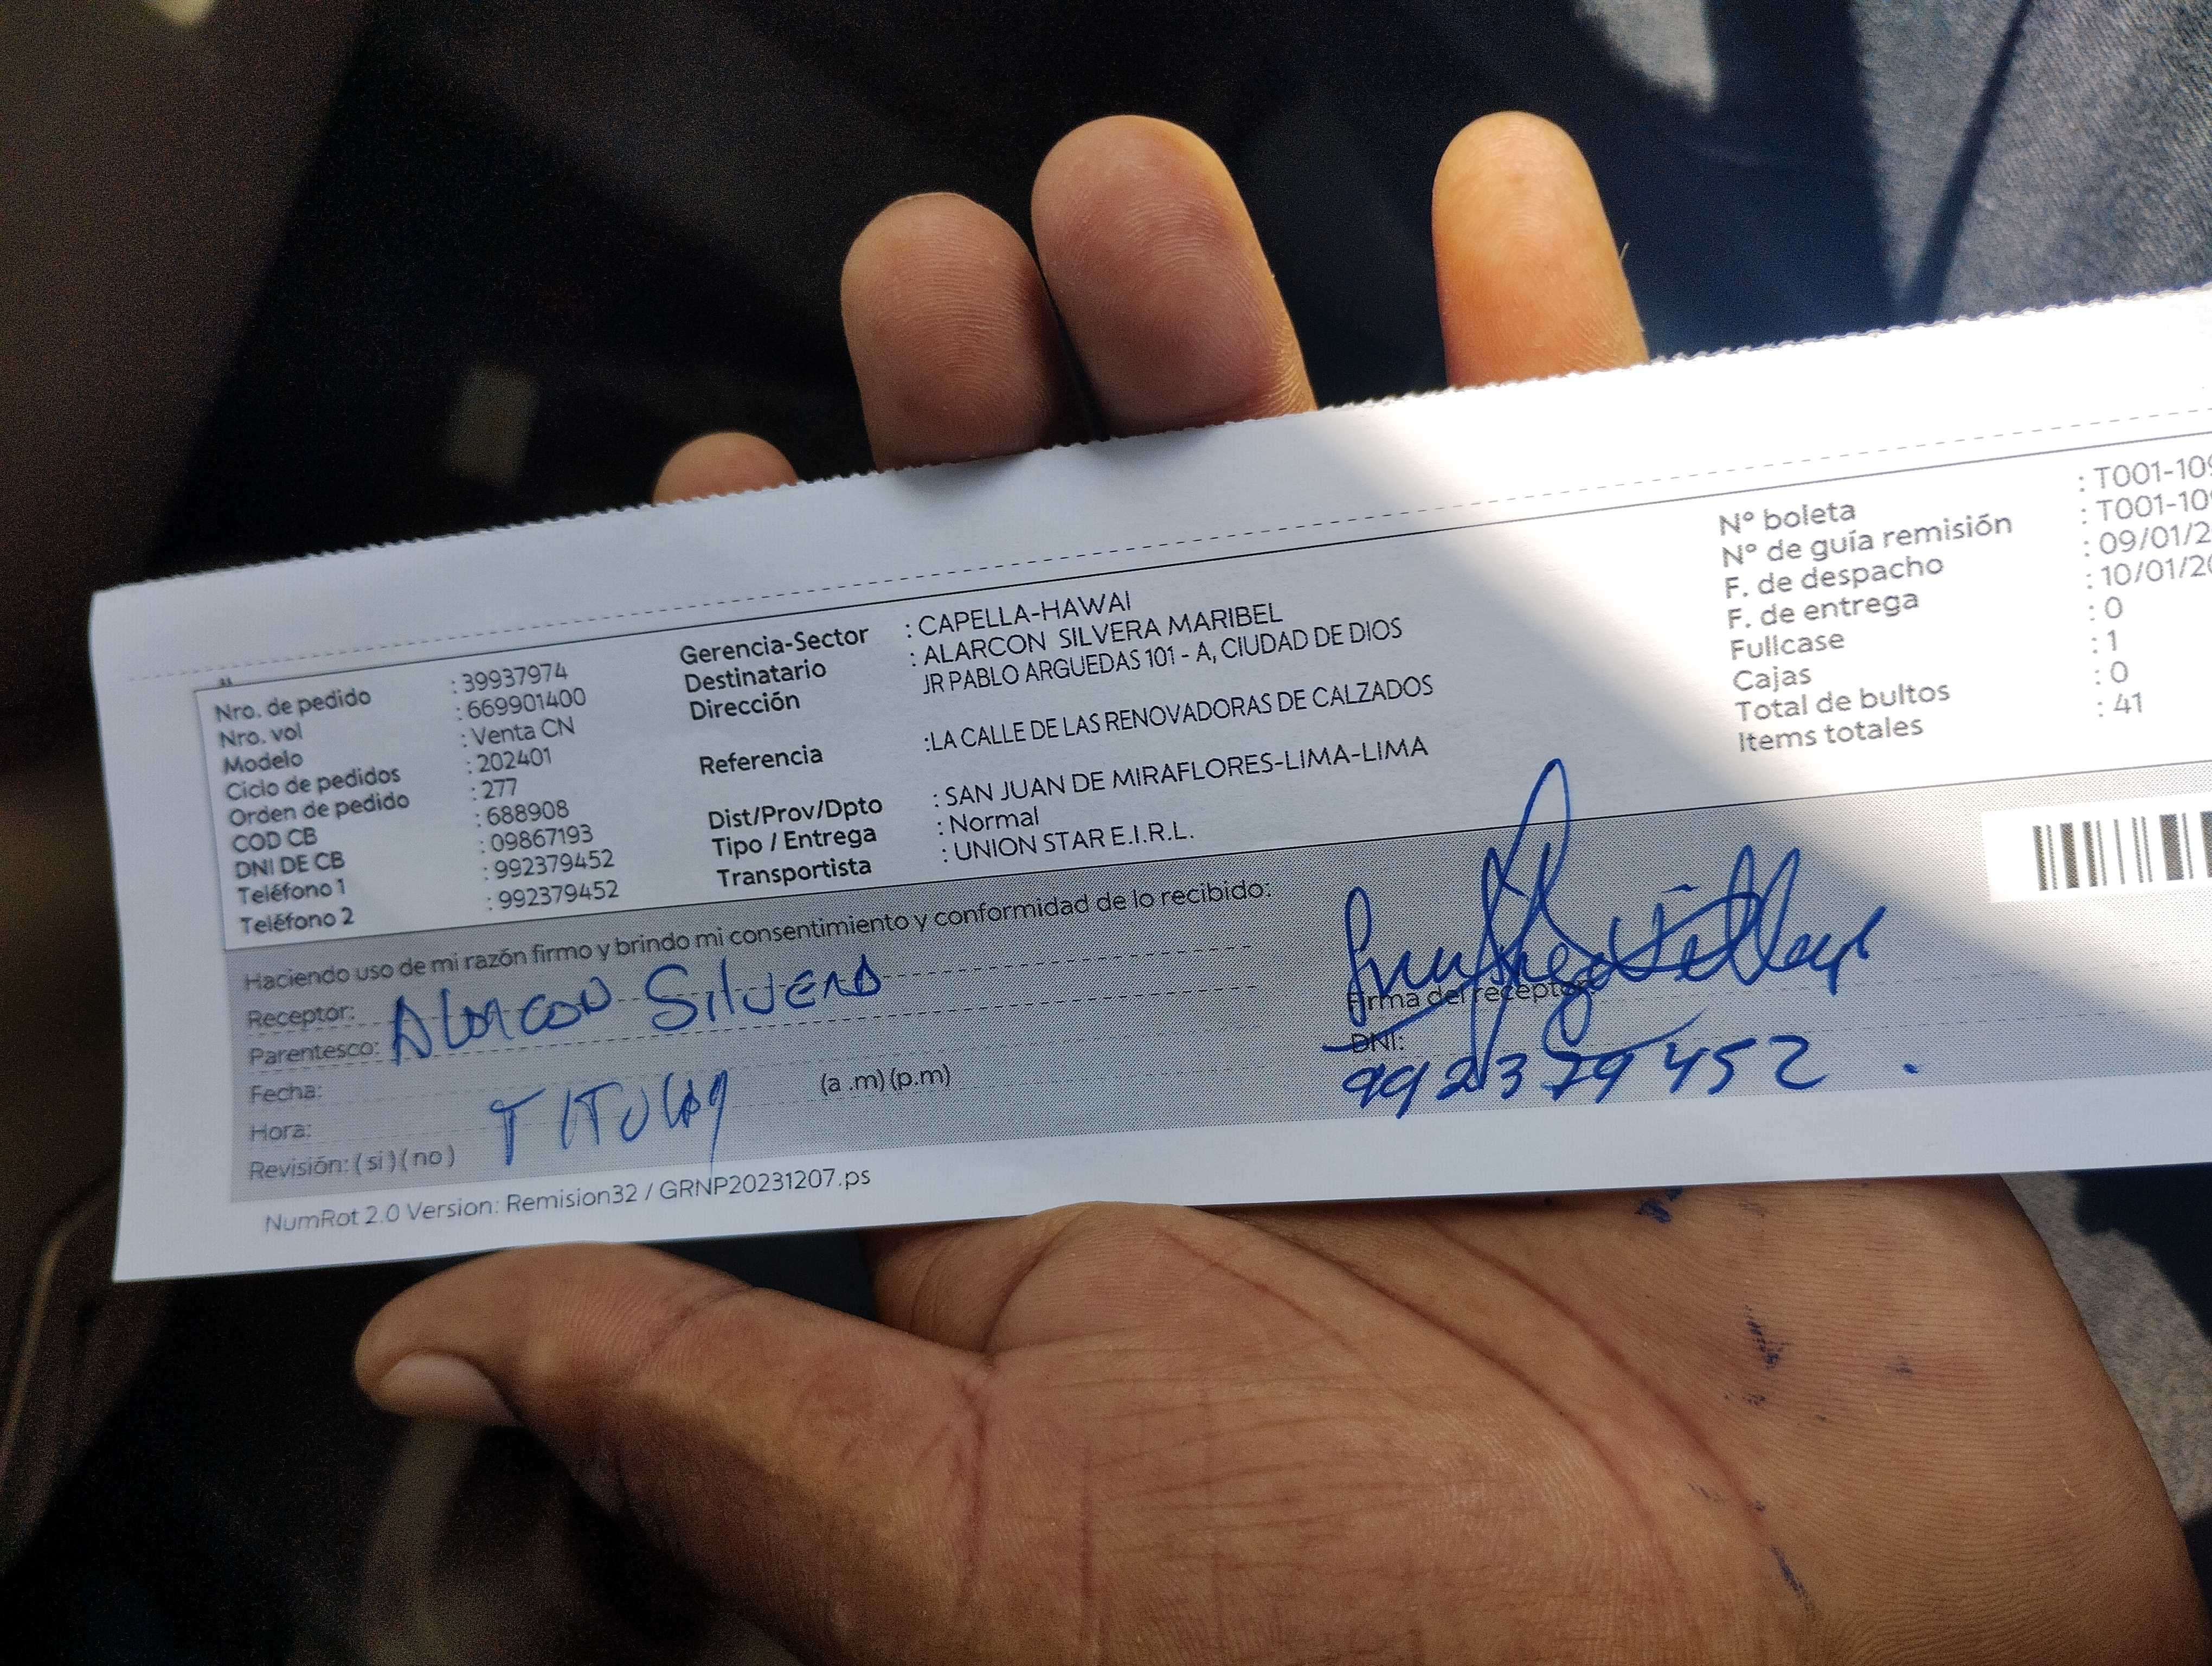 Nro. de pedido : 39937974
Nro. vol : 669901400
Modelo : Venta CN
Ciclo de pedidos : 202401
Orden de pedido : 277
COD CB : 688908
DNI DE CB : 09867193
Teléfono 1 : 992379452
Teléfono 2 : 992379452
Gerencia-Sector : CAPELLA-HAWAI
Destinatario : ALARCON SILVERA MARIBEL
Dirección JR PABLO ARGUEDAS 101 - A, CIUDAD DE DIOS
Referencia :LA CALLE DE LAS RENOVADORAS DE CALZADOS
Dist/Prov/Dpto : SAN JUAN DE MIRAFLORES-LIMA-LIMA
Tipo / Entrega : Normal
Transportista : UNION STAR E.I.R.L.
N° boleta : T001-109
N° de guía remisión : T001-109
F. de despacho : 09/01/2
F. de entrega : 10/01/20
Fullcase : 0
Cajas : 1
Total de bultos : 0
Items totales : 41
Haciendo uso de mi razón firmo y brindo mi consentimiento y conformidad de lo recibido:
Receptor: Alarcon Silvera
Parentesco:
Fecha:
Hora: Titular (a .m) (p.m)
Revisión: ( si ) ( no )
Firma del receptor
DNI:
992379452 .
NumRot 2.0 Version: Remision32 / GRNP20231207.ps